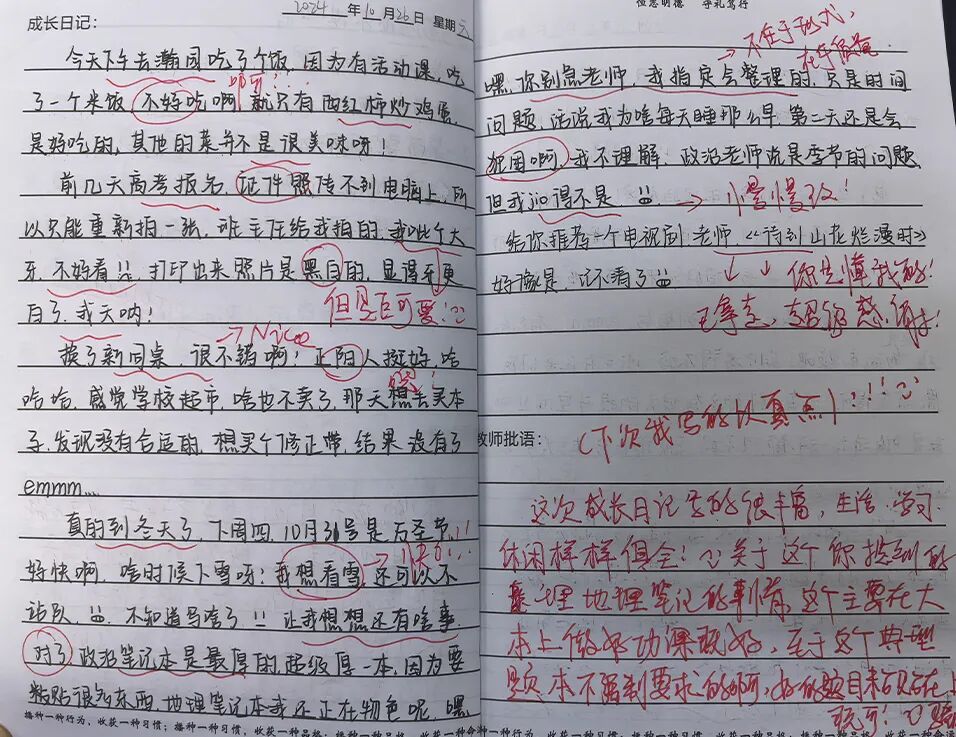 成长日记：
2024 年 10 月 26 日 星期六
今天下午去瀚园吃了个饭，因为有活动课，吃
了一个米饭 不好吃啊，就只有西红柿炒鸡蛋
是好吃的，其他的菜并不是很美味呀！
前几天高考报名，证件照传不到电脑上，所
以只能重新拍一张，班主任给我拍的，我呲个大
牙，不好看，打印出来照片是黑白的，显得牙更
白了，我天呐！
但是巨可爱！
→Nice
换了新同桌，很不错啊！正阳人挺好，哈
哈哈，感觉学校超市，啥也不卖了，那天想去买本
子，发现没有合适的，想买个修正带，结果没有了
emmm....
真的到冬天了，下周四，10月31号是万圣节，
→快了!...
好快啊，啥时候下雪呀？我想看雪，还可以不
站队，不知道写啥了 让我想想还有啥事，
对了 政治笔记本是最厚的，超级厚一本，因为要
粘贴很多东西，地理笔记本我还正在物色呢，嘿，
恒志明德 守礼笃行
→不在于形式，
在于质量
嘿，你别急老师，我指定会整理的，只是时间
问题，话说我为啥每天睡那么早，第二天还是会
犯困啊，我不理解，政治老师说是季节的问题
但我jio得不是 → 慢慢改！
给你推荐一个电视剧 老师，《待到山花烂漫时》
好像是，记不着了
你是懂我的！
已拿走，志铭 感谢！
教师批语：
（下次我写的认真点）！！！
这次成长日记写的很丰富，生活、学习
休闲样样俱全！关于这个你提到的
整理地理笔记的事情，这个主要在大
本上做好功课就好，至于这个典型
题本不强制要求的啊，好的题目来